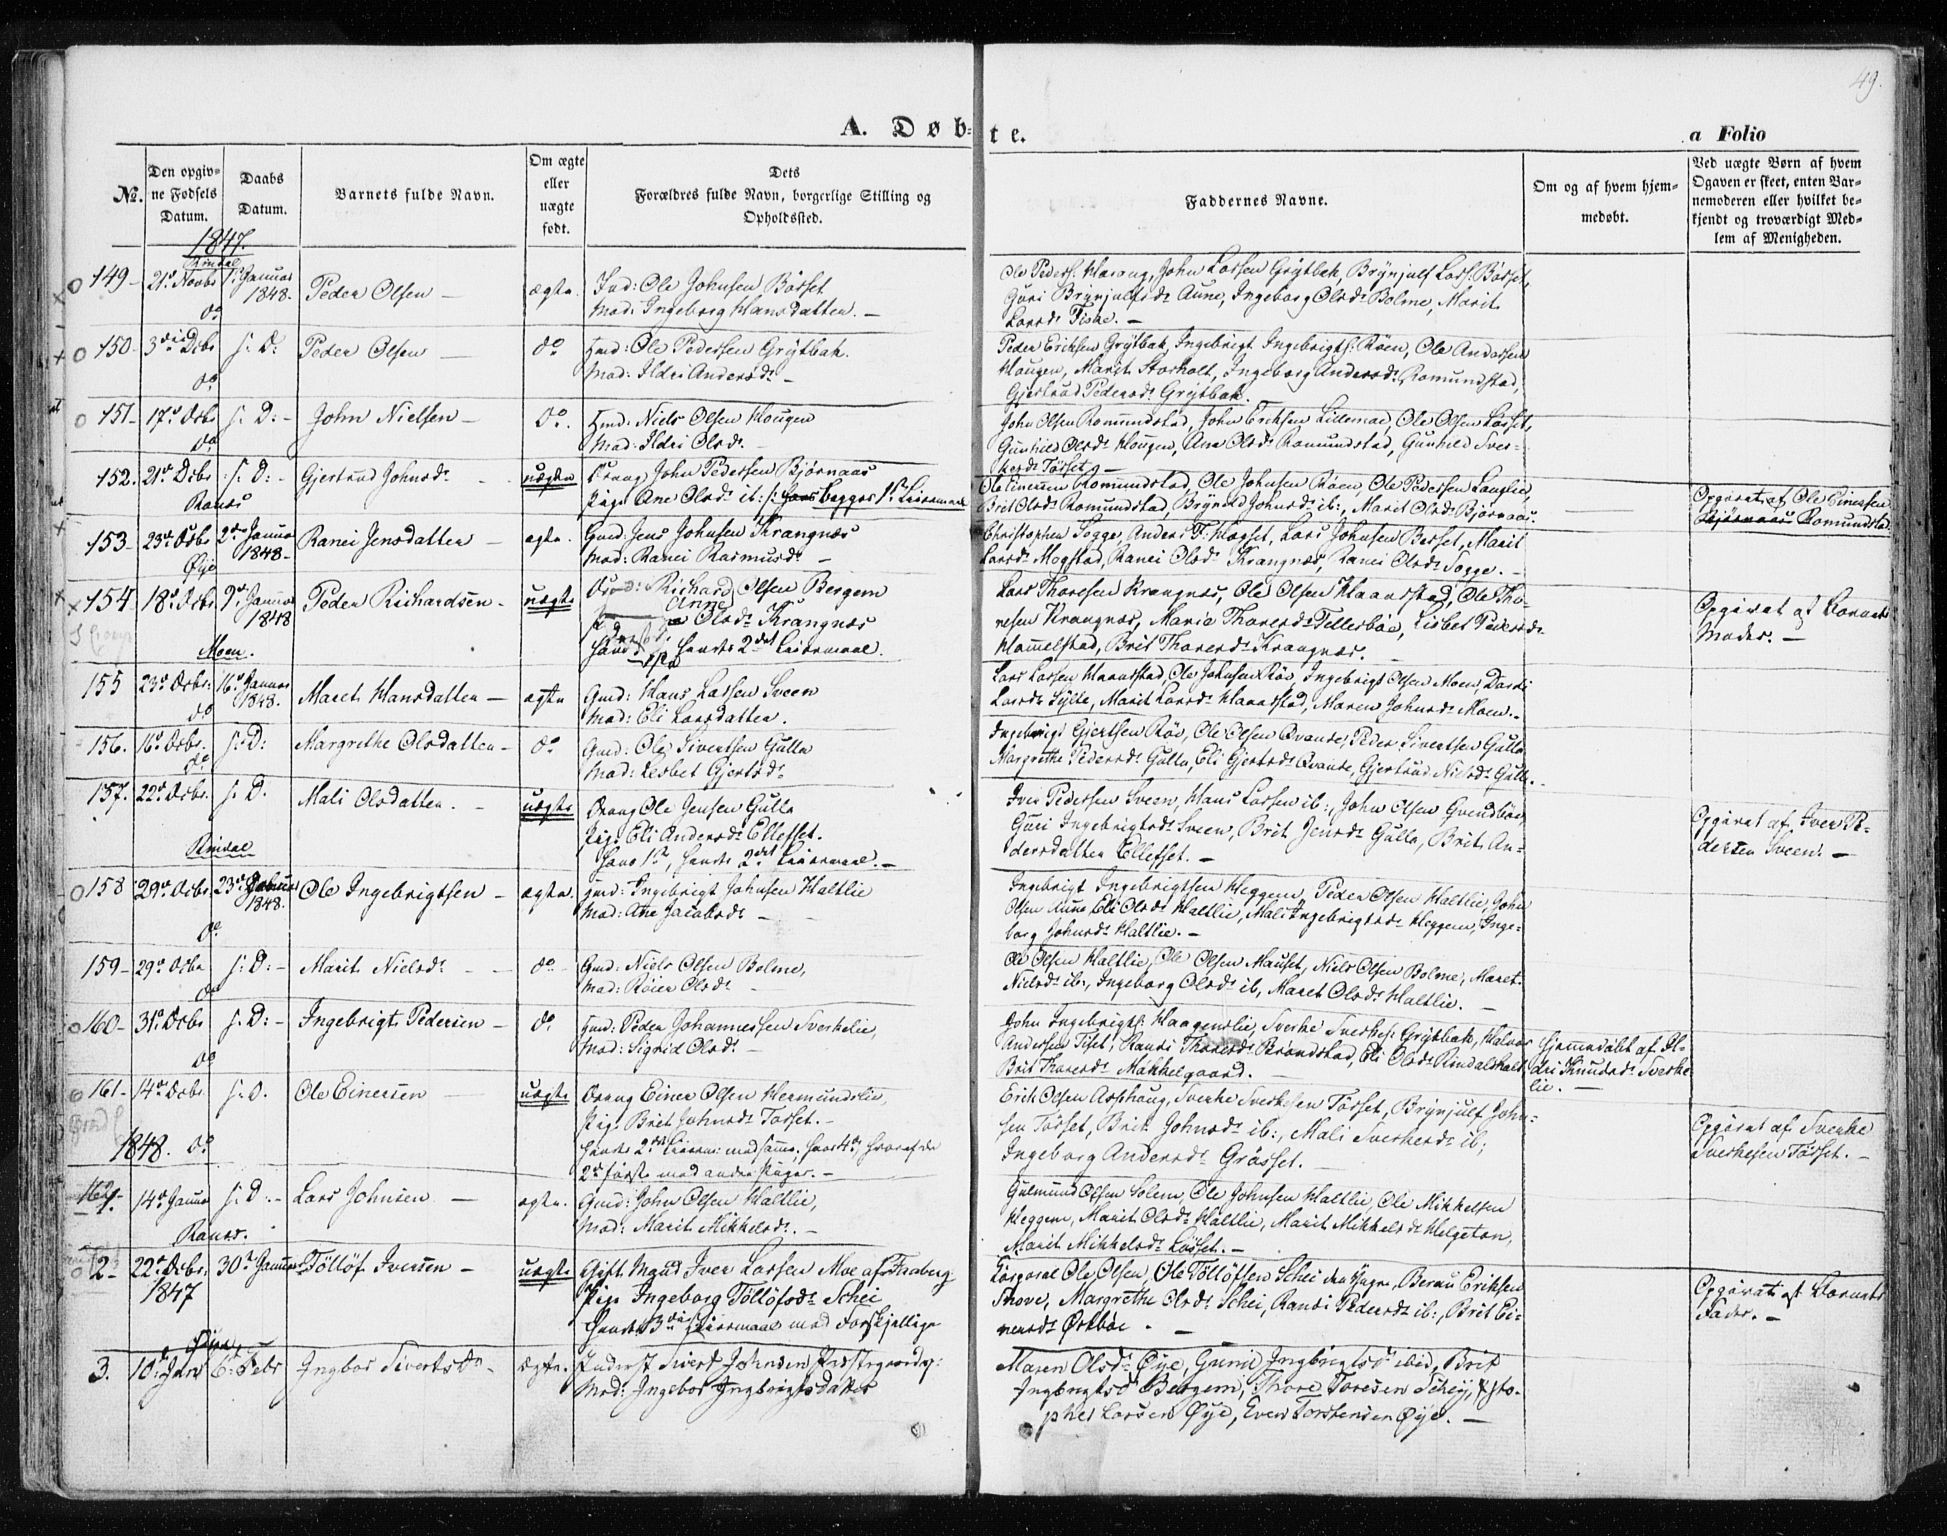 49.
A. Døbte.
a Folio
No.
Den opgivne Fødsels Datum.
Daabs Datum.
Barnets fulde Navn.
Om ægte eller uægte født.
Dets Forældres fulde Navn, borgerlige Stilling og Opholdssted.
Faddernes Navne.
Om og af hvem hjemmedøbt.
Ved uægte Børn af hvem Opgaven er skeet, enten Barnemoderen eller hvilket bekjendt og troværdigt Medlem af Menigheden.
1847.
Rindal
149 - 21de Novbr 1ste Januar 1848. Peder Olsen - ægte. Ole Johnsen Børset
Mod: Ingeborg Hansdatter. -
John Larsen Grytbak, Brynjulf Lars: Børset,
Guri Brynjulfsd: Aune, Ingeborg Olsd: Bolme, Marit
Larsd: Fiske. -
do
150 - 3die Dcbr s: D: Peder Olsen - do Gmd: Ole Pedersen Grytbak.
Mod: Ildri Andersd: -
Peder Eriksen Grytbak, Ingebrigt Ingebrigts: Røen, Ole Andersen
Hougen, Marit Storholt, Ingeborg Andersd: Romundstad,
Gjertrud Pedersd: Grytbak.
do
151 - 17de Dcbr s: D: - John Nielsen - do. Gmd: Niels Olsen Hougen
Mod: Ildri Olsd: -
John Olsen Romundstad, John Eriksen Lillemoe, Ole Olsen Løset,
Gunhild Olsd: Hougen, Ane Olsd: Romundstad, Gunhild Sver-
kersd: Tørset. -
do
152. 21de Dcbr s: D: - Gjertrud Johnsd: uægte Dreng John Pedersen Bjørnaas
Pige Ane Olsd: ib: begges 1ste Leiermaal
Ole Einersen Romundstad, Ole Johnsen Røen, Ole Pedersen Langlie,
Brit Olsd: Romundstad, Brynild Johnsd: ib:, Marit Olsd: Bjørnaas.
Opgivet af Ole Einersen
Bjørnaas Romundstad.
Ranes
153 - 23de Dcbr 2den Januar 1848 - Ranei Jensdatter - ægte. Gmd: Jens Johnsen Krangnæs
Mod: Ranei Rasmusd: -
Christophen Togge, Anders T: Hagset, Lars Johnsen Berset, Marit
Larsd: Mogstad, Ranei Olsd: Krangnæs, Ranei Olsd: Togge. -
Øye
154 18de Dcbr 9de Januar 1848 Peder Richardsen - uægte Richard Olsen Bergem
Anne Olsd: Krangnæs
hendes 2det Leiermaal.
Lars Thoresen Krangnæs, Ole Olsen Haandstad, Ole Tho-
resen Krangnæs, Maria Thoresd: Tellesbøe, Lisbet Pedersd:
Hammelstad, Brit Thoresd: Krangnæs.
Opgivet af Barnets
Moder. -
Moen.
155 23de Dcbr: 16de Januar 1848. Maret Hansdatter - ægte Gmd: Hans Larsen Sveen
Mod: Eli Larsdatter.
Lars Larsen Haandstad, Ole Johnsen Røv, Ingebrigt Olsen Moen, Dordi
Larsd: Sylte, Marit Larsd: Haandstad, Maren Johnsd: Moen. -
do
156. 16de Dcbr. s: D: Margrethe Olsdatter - do Gmd: Ole Sivertsen Gulla
Mod: Lesbet Gjertsd:
Ingebrigt Gjertsen Røv, Ole Olsen Qvande, Peder Sivertsen Gulla
Margrethe Pedersd: Gulla, Eli Gjertsd: Qvande, Gjertrud Nielsd: Gulla.
do
157. 22de Dcbr. s: D. Mali Olsdatter. - uægte Dreng Ole Jensen Gulla
Pige Eli Andersd: Ellefset.
hans 1ste, hendes 2det Leiermaal. -
Iver Pedersen Sveen, Hans Larsen ib:, John Olsen Grendbøe,
Guri Ingebrigtsd: Sveen, Brit Jensd: Gulla, Brit An-
dersdatter Ellefset. -
Opgivet af Iver Pe-
dersen Sveen. -
Rindal
158 29de Dcbr 23de Januar 1848. Ole Ingebrigtsen - ægte. Gmd: Ingebrigt Johnsen Haltlie
Mod: Ane Jacobsd: -
Ingebrigt Ingebrigtsen Heggem, Peder Olsen Haltlie, John
Olsen Aune, Eli Olsd: Haltlie, Mali Ingebrigtsd: Heggem, Inge-
borg Johnsd: Haltlie. -
do
159 - 29de Dcbr s: D: - Marit Nielsd: - do - Gmd: Niels Olsen Bolme,
Mod: Røier Olsd: -
Ole Olsen Haltlie, Ole Olsen Mauset, Niels Olsen Bolme, Maret
Nielsd: ib:, Ingeborg Olsd: ib, Maret Olsd: Haltlie. -
do
160 - 31te Dcbr s: D: - Ingebrigt Pedersen - do. Gmd: Peder Johannessen Sverkelie,
Mod: Sigrid Olsd: -
John Ingebrigts: Haagenslie, Sverke Sverkes: Grytbak, Halvor
Andersen Tiset, Randi Thoresd: Brøndstad, Eli Olsd: Rindalsholt
Brit Thoresd: Mikkelgaard. -
Hjemmedøbt af Il-
dri Knudsd: Sverke-
lie. -
do
161 - 14de Dcbr. s: D. Ole Einersen uægte Drang Einer Olsen Hermundslie,
Pige Brit Johnsd: Tørset.
hendes 2det Leierm: med samme, hans 4de, hvoraf de
2de første med andre Piger. -
Erik Olsen Asphoug, Sverke Sverkesen Tørset, Brynjulf John-
sen Tørset, Brit Johnsd: ib:, Mali Sverkersd: ib;
Ingeborg Andersd: Gråsset.
Opgivet af Sverke
Sverkesen Tørset. -
1848. do
14de Januar s: D: - Lars Johnsen - ægte. Gmd: John Olsen Haltlie,
Mod: Marit Mikkelsd: -
Gulmund Olsen Solem, Ole Johnsen Haltlie, Ole Mikkelsen
Heggem, Marit Olsd: Haltlie, Marit Mikkelsd: Helgeton,
Marit Mikkelsd: Løset. -
Ranes.
2 - 22de Dcbr: 1847 30te Januar Tølløf Iversen - uægte Gift Mand Iver Larsen Moe af Faaberg
Pige Ingeborg Tølløfsd: Schei
hendes 3die Leiermaal med Forskjellige
Corporal Ole Olsen, Ole Tølløfsen Schei den Yngre, Bernt Eriksen
Thove, Margrethe Olsd: Schei, Randi Pedersd: ib:, Brit Ei-
nersd: Ørebøe. -
Opgivet af Barnets
Fader. -
Øye
3. 10: Janr 6: Febr Ingbor Sivertsdr - ægte. Inderst Sivert Johnsen Præstegaards:
Mod: Ingebor Ingbrigtsdatter
Maren Olsdr Øye, Guru Ingbrigtsdr ibid, Brit
Ingbrigtsdr Bergem, Thore Toresen Schey, Christo-
pher Larsen Øye, Even Torstensen Øye. -